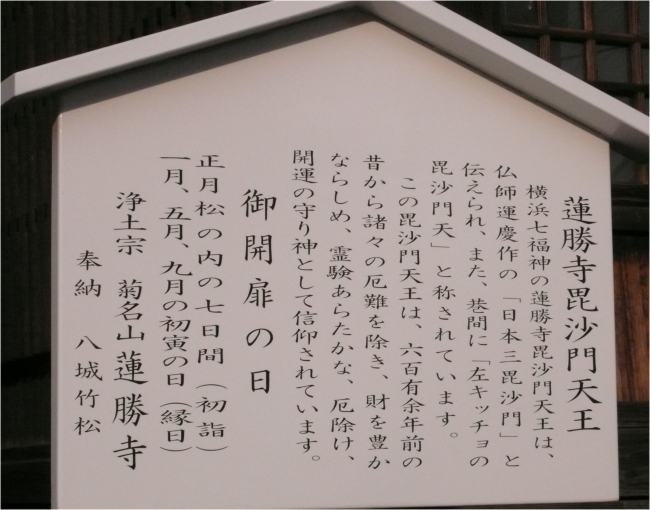 蓮勝寺毘沙門天王
横浜七福神の蓮勝寺毘沙門天王は、
仏師運慶作の「日本三毘沙門」と
伝えられ、また、巷間に「左キッチョの
毘沙門天」と称されています。
この毘沙門天王は、六百有余年前の
昔から諸々の厄難を除き、財を豊か
ならしめ、霊験あらたかな、厄除け、
開運の守り神として信仰されています。
御開扉の日
正月松の内の七日間（初詣）
一月、五月、九月の初寅の日（縁日）
浄土宗 菊名山蓮勝寺
奉納 八城竹松